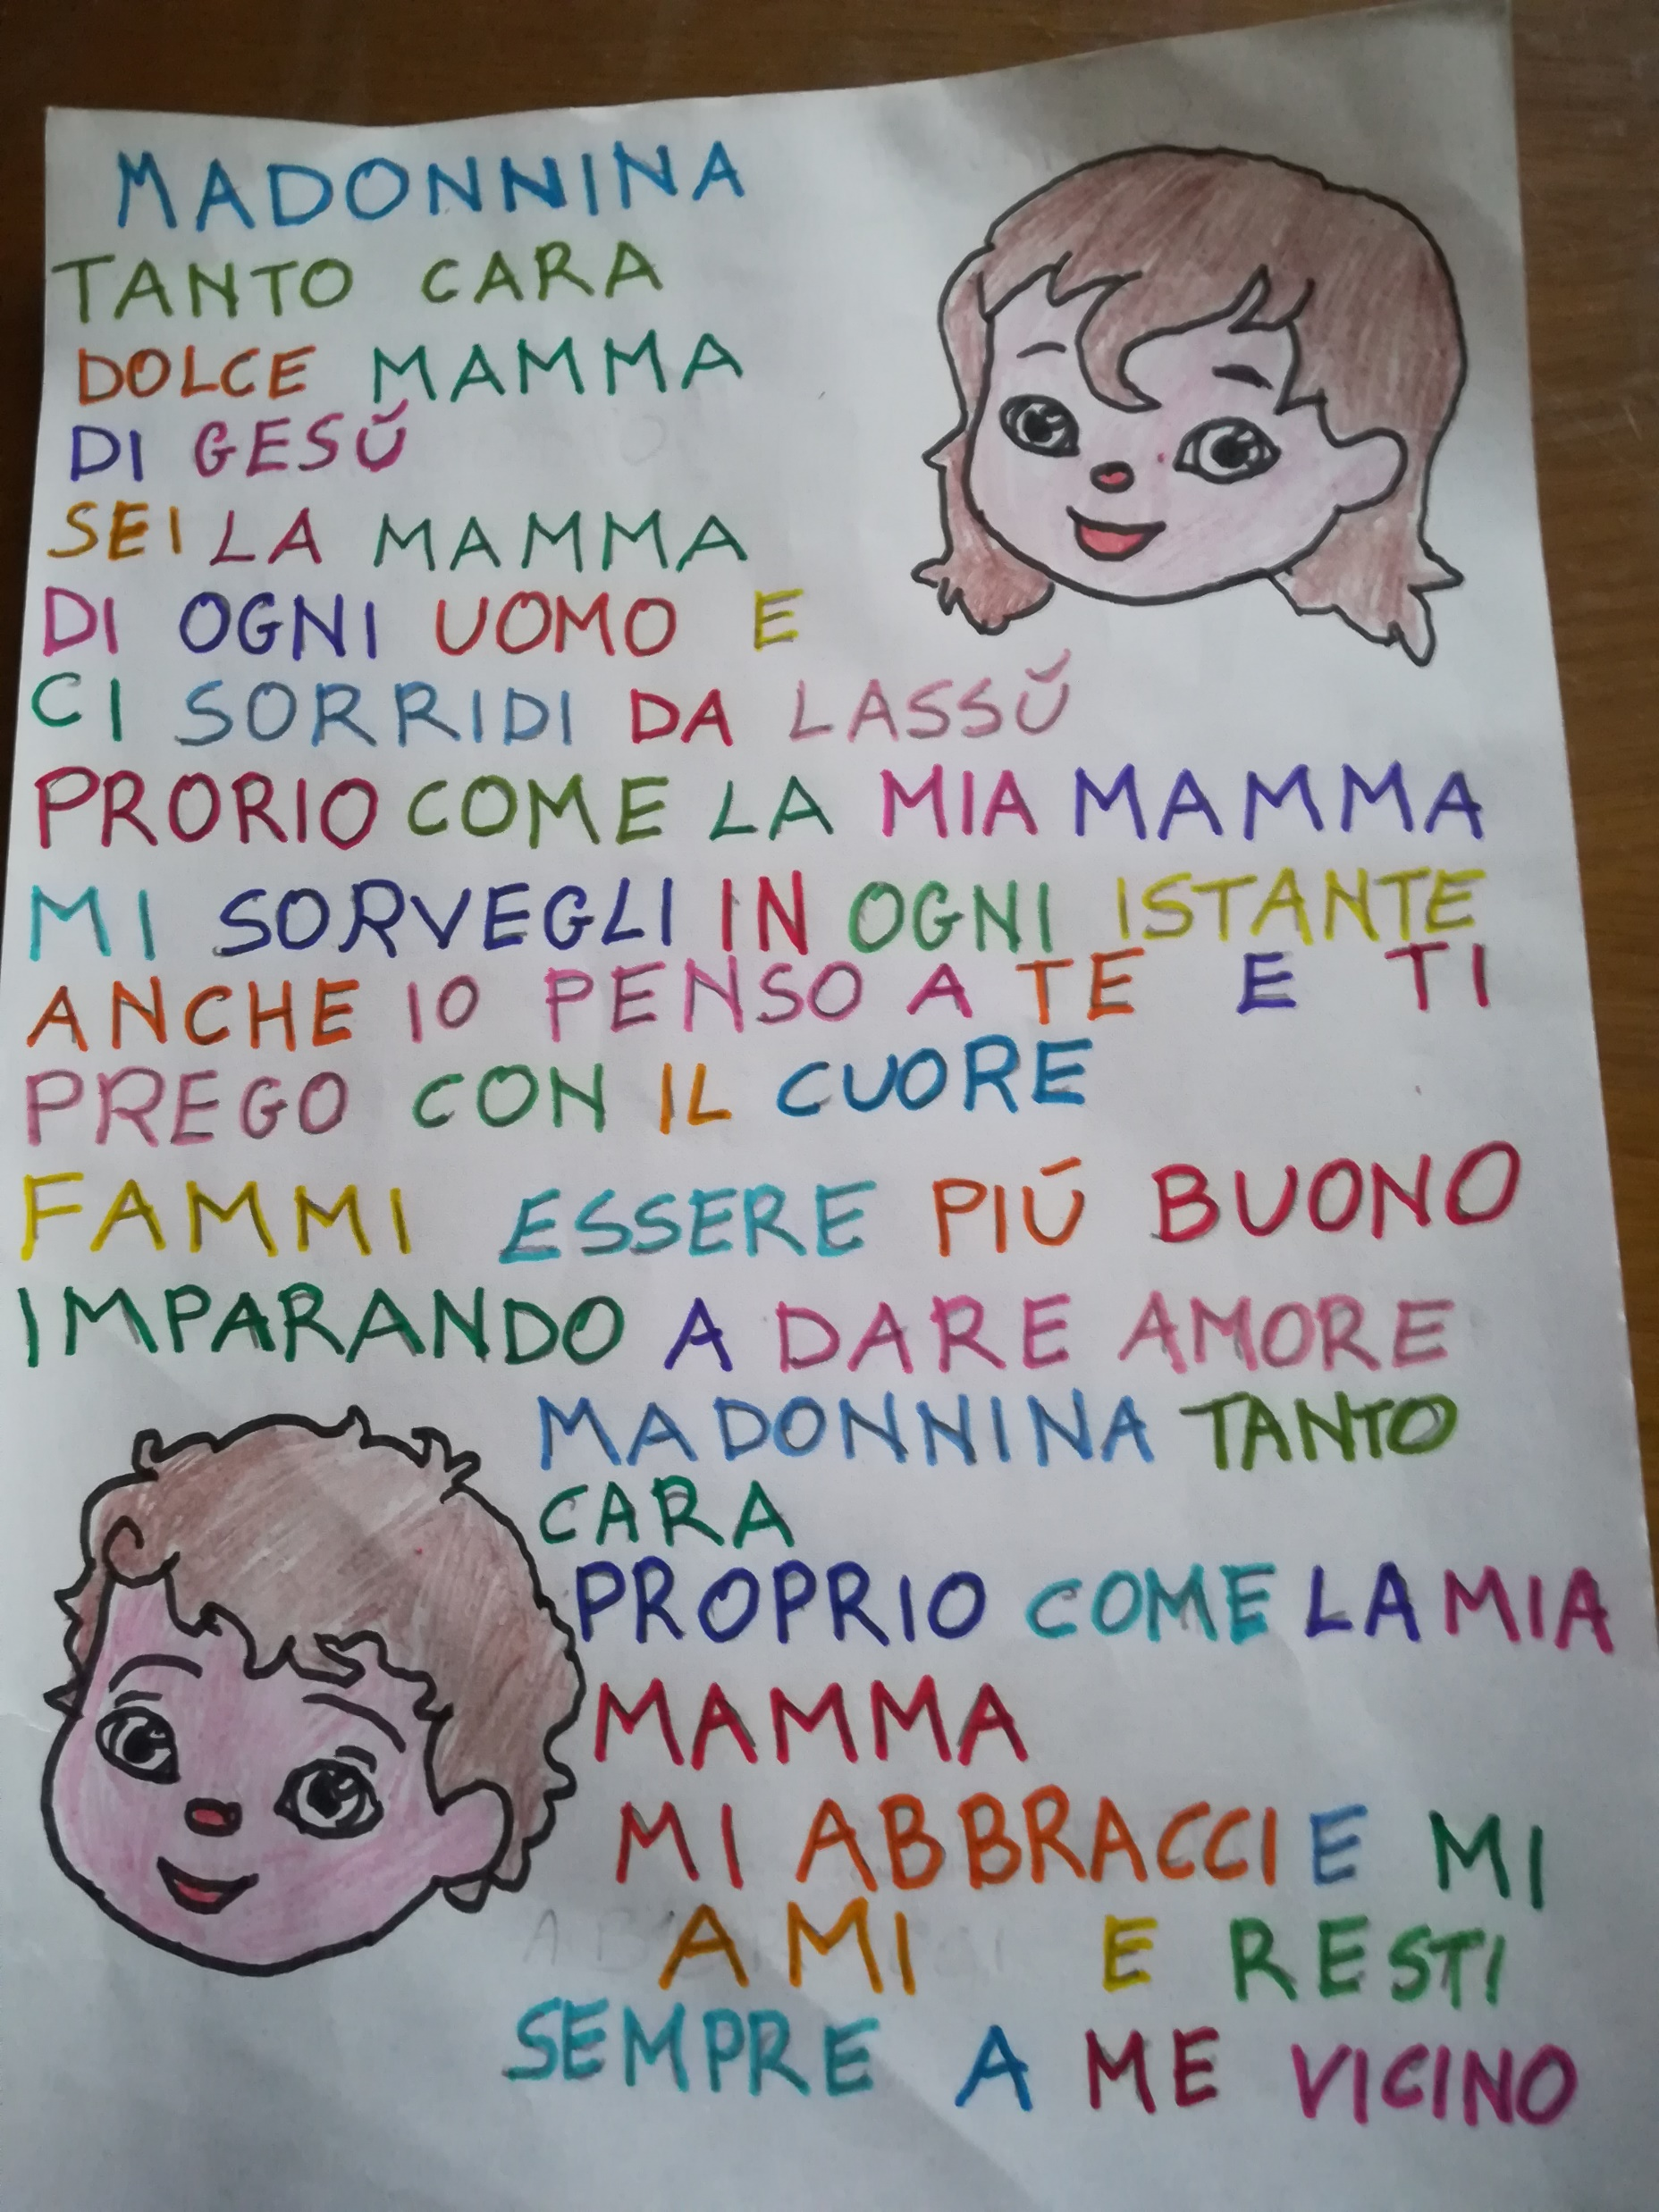 MADONNINA
TANTO CARA
DOLCE MAMMA
DI GESŬ
SEI LA MAMMA
DI OGNI UOMO E
CI SORRIDI DA LASSŬ
PRORIO COME LA MIA MAMMA
MI SORVEGLI IN OGNI ISTANTE
ANCHE IO PENSO A TE E TI
PREGO CON IL CUORE
FAMMI ESSERE PIÚ BUONO
IMPARANDO A DARE AMORE
MADONNINA TANTO
CARA
PROPRIO COME LA MIA
MAMMA
MI ABBRACCI E MI
AMI E RESTI
SEMPRE A ME VICINO